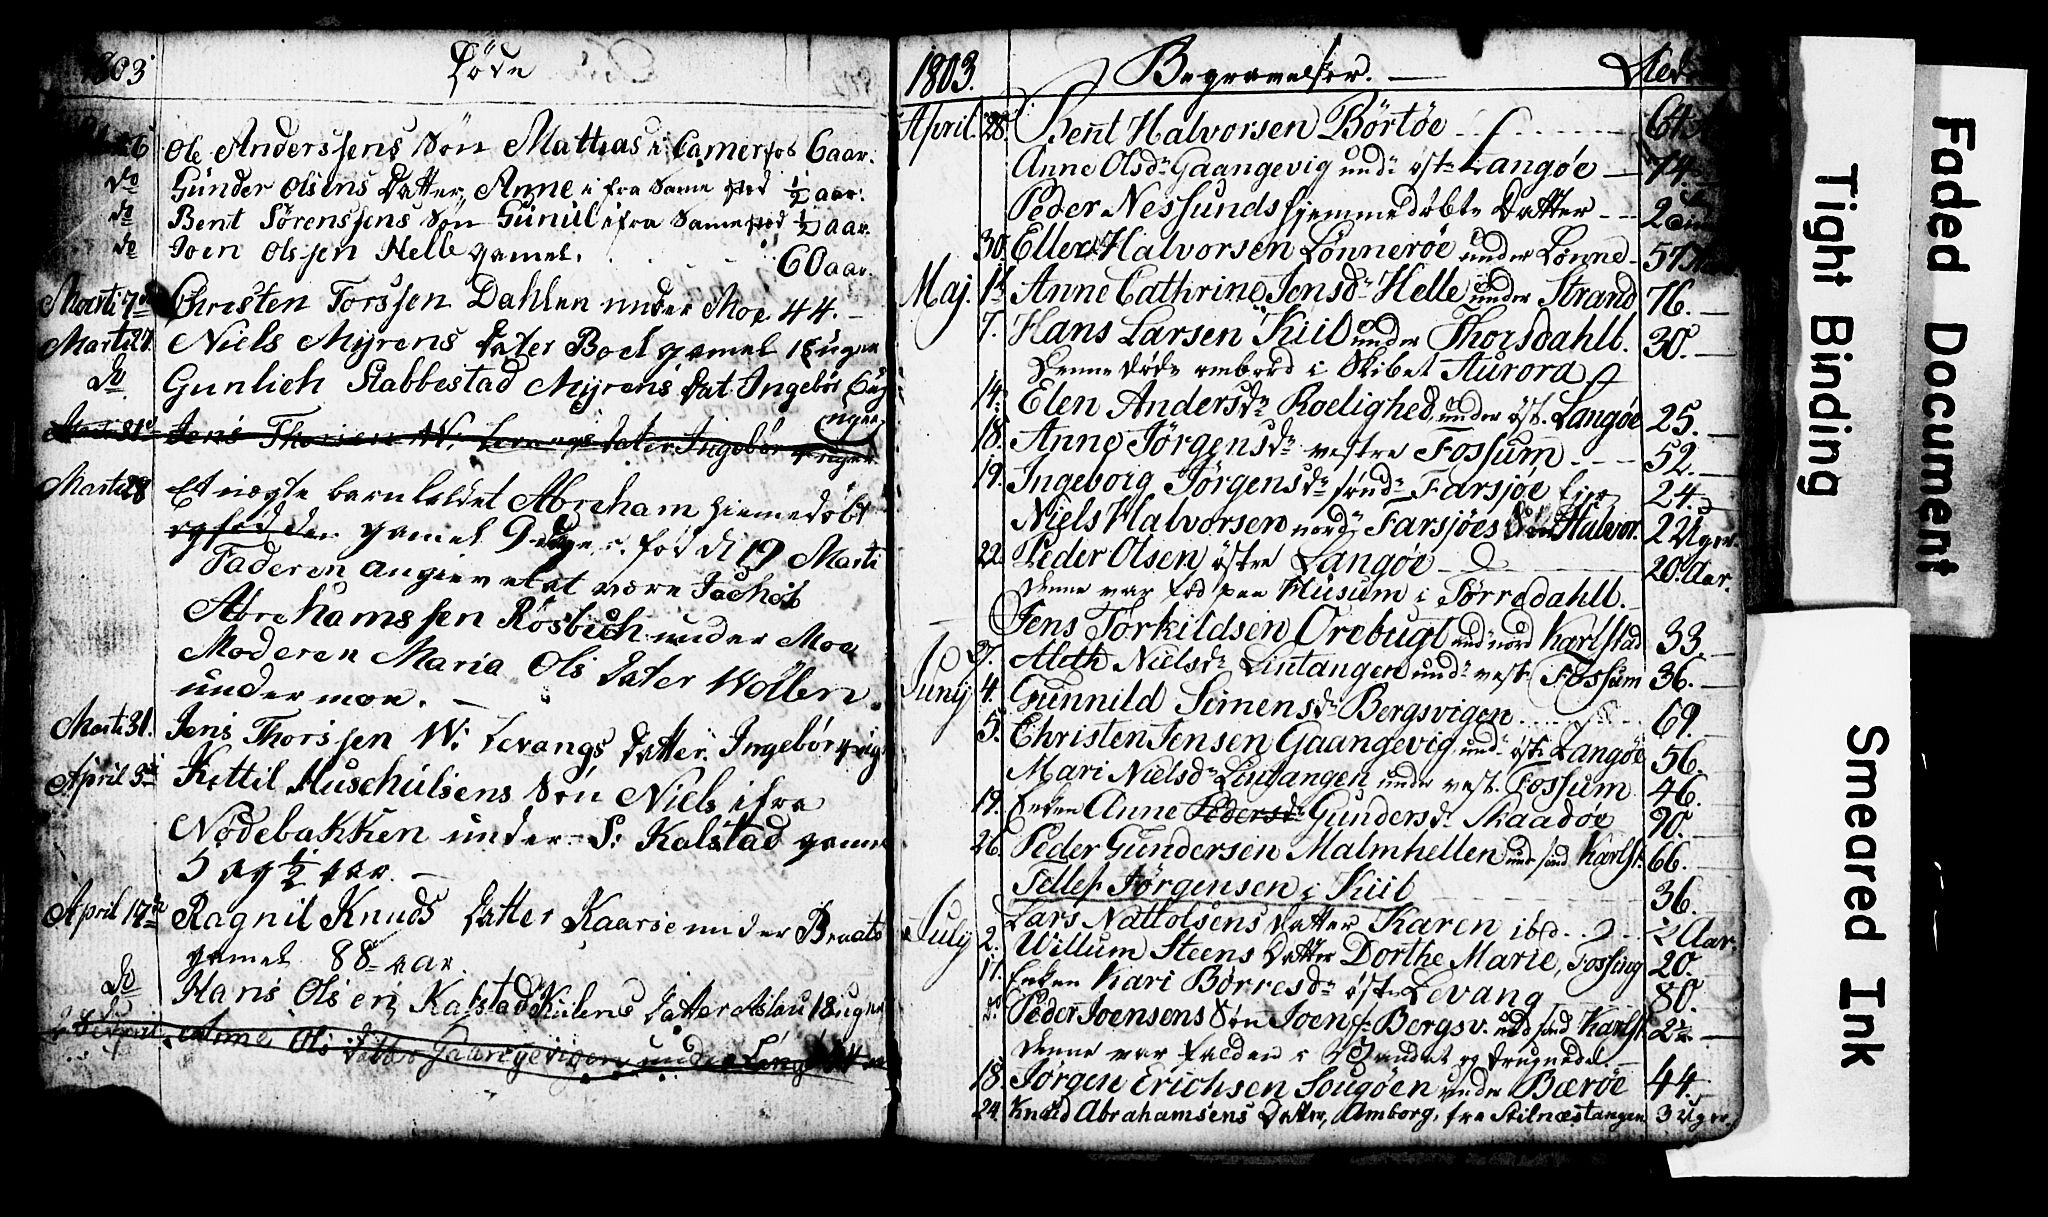 1803 Döde
26 Ole Anderssens Sön Mattias i Camerfos 6 aar.
do Günder Olsens Datter Anne i fra Samme Sted 1/2 aar.
do Bent Sörenssens Sön Gunul ifra Sammested 1/2 aar.
do Joen Olssen Helle gamel. 60 aar.
Marti 7de Christen Torssen Dahlen under Moe 44. –
Marti 27. Niels Myrens Dater Boel gamel 18 uger
do Gunlich Stabbestad Myrens Dat Ingebör 6 ug
uger
Jens Thorssen W: Levangs Dater Ingebör 4 uger
Marti 28 Et uægte barn kaldet Abreham hiemedöbt
og föd den gamel 9 dage. föd d 19 Marti
Faderen angieven at være Jachob
Abrehamssen Rösbich under Moe
Moderen Maria Ols Dater Wollen
under moe. –
Marti 31. Jens Thorssen W: Levangs Datter. Ingebör 4 ug
April 3de Kettil Muschulsens Sön Niels ifra
Nödebakken under S: Kalstad gamel
5 og 1/2 aar. –
April 17de Ragnil Knuds Datter Kaarsen under Braats
gamel 88 aar.
do Hans Olsen Kalstad Kiilens Datter Aslau 18 uger
April Anne Ols Datter Gaangevigen under Lang
1803. Begravelser. –
April 28. Bent Halvorsen Börtöe 64
Anne Olsdr Gaangevig undr östr Langöe – 74.
Peder Nessunds hjemmedöbte Datter – 2
30. Ellen Halvorsen Lönneröe under Lönne– 57
Maj. 1. Anne Cathrine Jensdr Helle under Strand 76. –
7. Hans Larsen Kiil under Thorsdahll. 30. –
Denne döde ombord i Skibet Aurora
14. Elen Andersdr Roelighed under öst. Langöe 25. –
18. Anne Jörgensdr vestre Fossum 52. –
19. Ingeborg Jörgensdr söndr Farsjöe Eje 24.
Niels Halvorsen nordr Farsjöes Sön Halvor. 2 Uger.
22. Peder Olsen östre Langöe 20. Aar.
Denne var föd paa Husum i Törredahll. –
Jens Törkildsen Orebugt undr nord Karlstad 33. –
Aleth Nielsdr Lintangen undr vestr Fossum 36. –
Junij 4. Gunnild Simensdr Bergsvigen 69. –
5. Christen Jensen Gaangevig undr östr Langöe 56.
Mari Nielsdr Lintangen under vest. Fossum 46. –
19. Enken Anne Pedersdr Gundersdr Skaadöe 90. –
26. Peder Gundersen Malmhellen und sönd Karlst. 66. –
Tellef Jörgensen i Kiil 36. –
Lars Nattolsens Datter Karen ibd. 1/2 Aar.
July 2. Willum Steens Datter Dorthe Marie, Fossing 20. –
17. Enken Kari Börresdr östr Levang 80. –
do Peder Joensens Sön Joen Bergsv. und sönd Karlst. 2 –
Denne var falden i Vandet og druknede. –
18. Jörgen Erichsen Sougöen under Bæröe 44. –
24. Knud Abrahamsens Datter, Amborg, fra Stilnæstangen 3 Uger.
Faded Document
Tight Binding
Smeared Ink